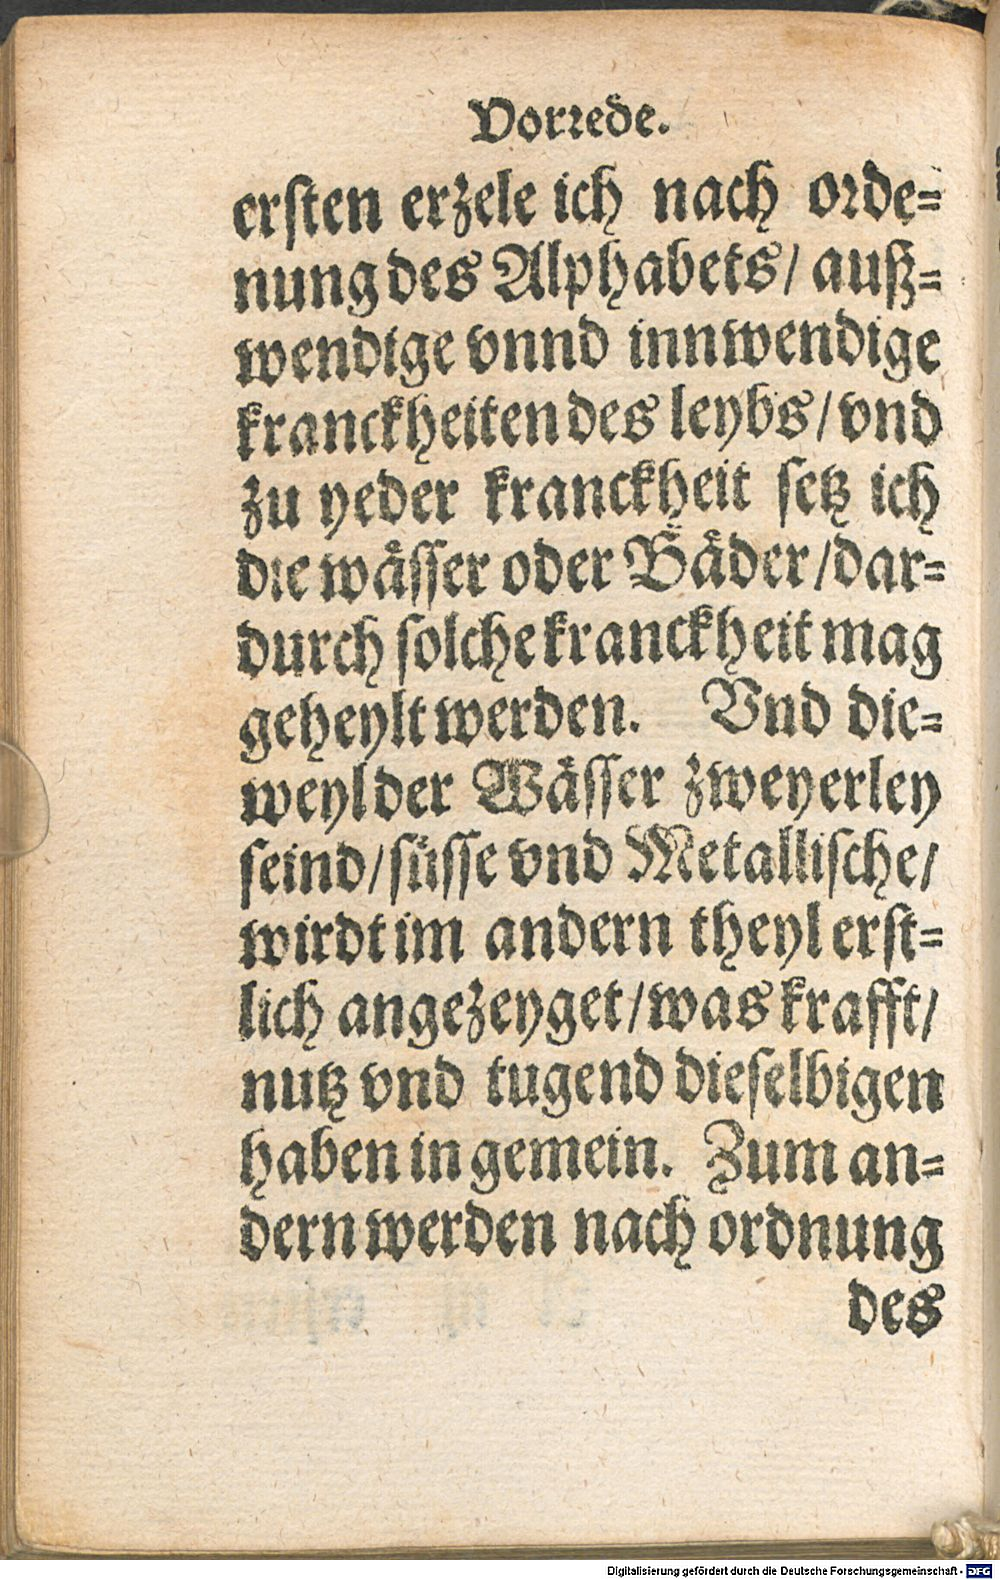 Vorrede.
ersten erzele ich nach orde=
nung des Alphabets/ auß=
wendige vnnd innwendige
kranckheiten des leybs/ vnd
zu yeder kranckheit setz ich
die wåsser oder Båder/ dar=
durch solche kranckheit mag
geheylt werden. Vnd die=
weyl der Wåsser zweyerley
seind/ süsse vnd Metallische/
wirdt im andern theyl erst=
lich angezeyget/ was krafft/
nutz vnd tugend dieselbigen
haben in gemein. Zum an=
dern werden nach ordnung
des
Digitalisierung gefördert durch die Deutsche Forschungsgemeinschaft - DFG